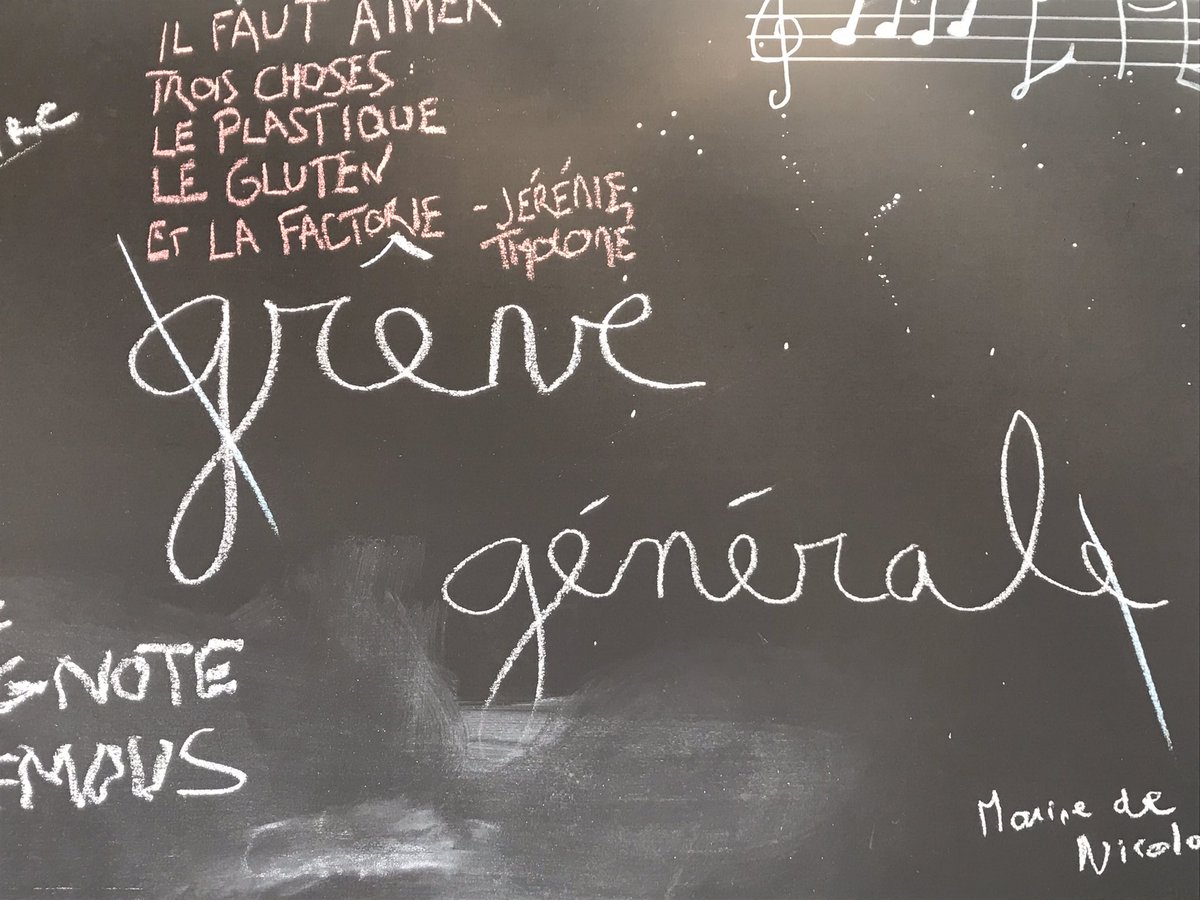 IL FAUT AIMER
TROIS CHOSES
LE PLASTIQUE
LE GLUTEN
ET LA FACTORIE - JÉRÉMIE,
grêve
générale
GNOTE
EMOUS
Marine de
Nicolo